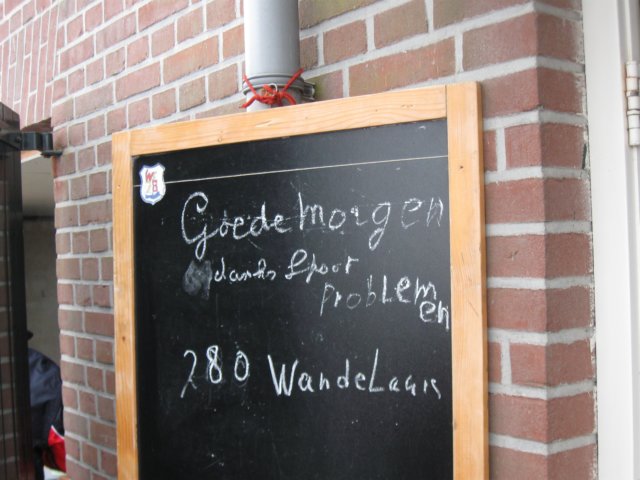 Goede Morgen
danks Spoor
Problem
en
280 WandeLaars